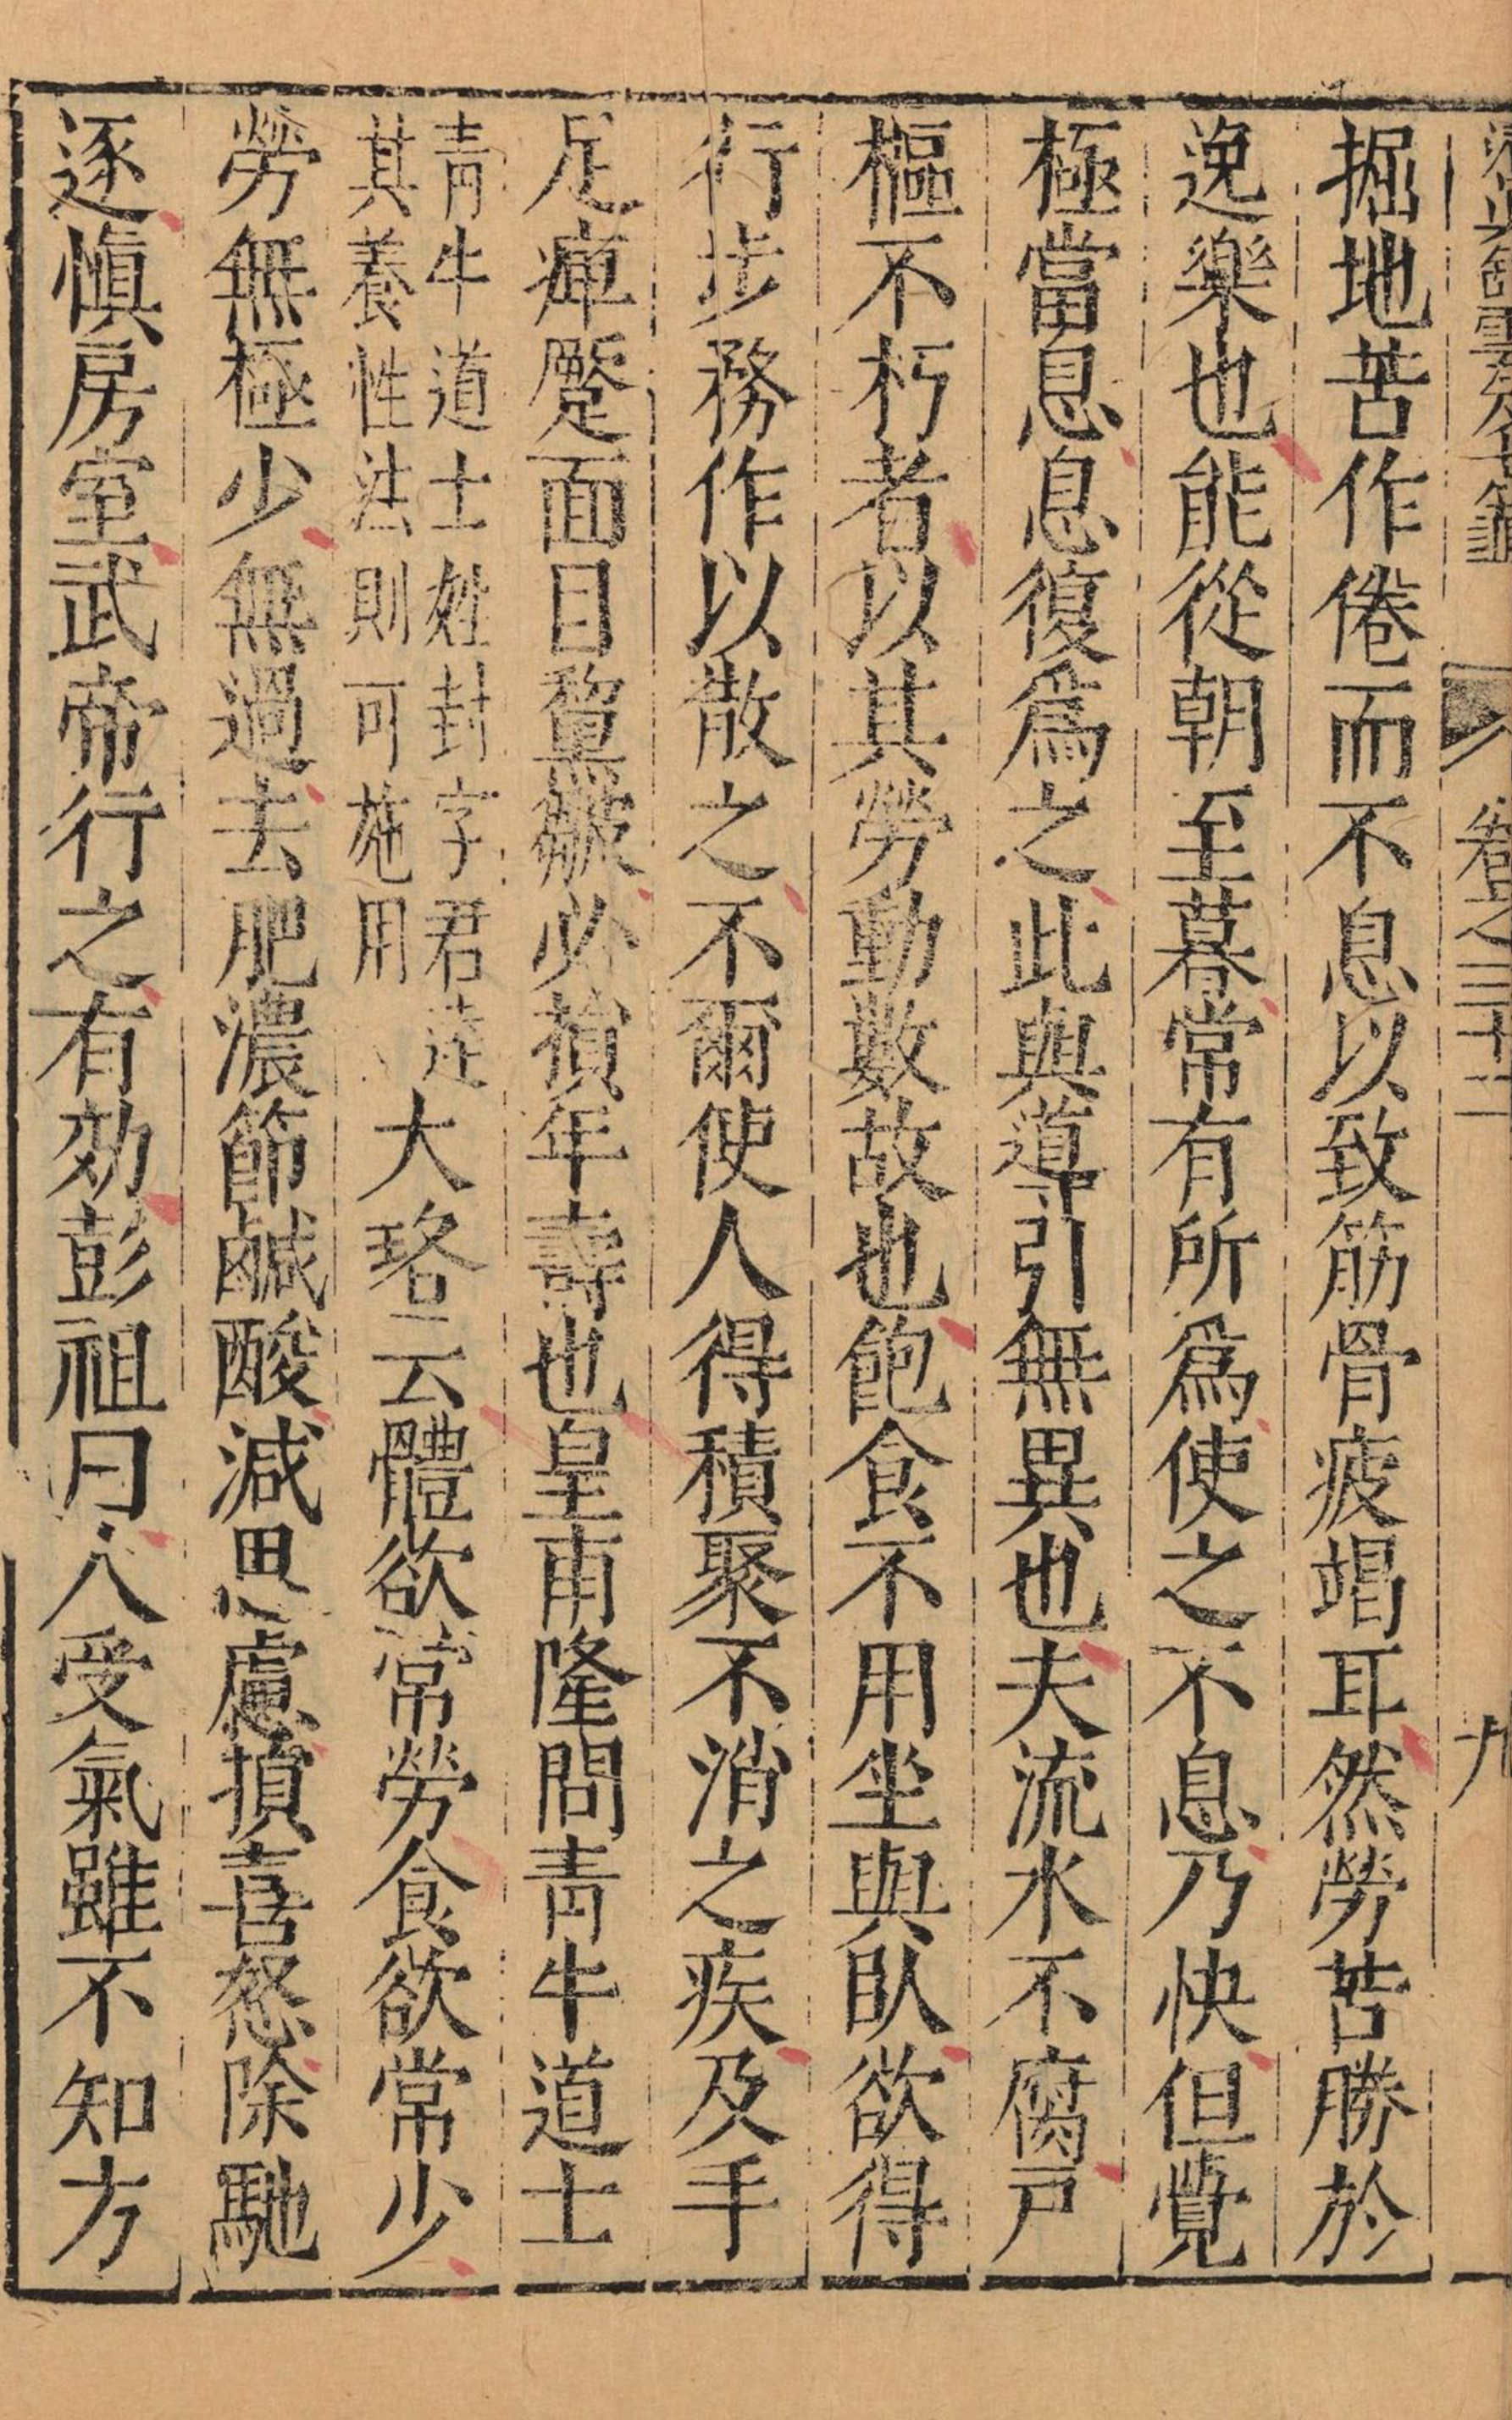 卷之三十二
九
掘地苦作倦而不息以致筋骨疲竭耳然勞苦勝於
逸樂也能從朝至暮常有所爲使之不息乃快但覺
極當息息復爲之此與導引無異也夫流水不腐戸
樞不朽者以其勞動數故也飽食不用坐與臥欲得
行步務作以散之不爾使人得積聚不消之疾及手
足痺蹷面目黧皺必損年壽也皇甫隆問青牛道士
青牛道士姓封字君逹
其養性法則可施用
大畧云體欲常勞食欲常少
勞無極少無過去肥濃節鹹酸減思慮損喜怒除馳
逐慎房室武帝行之有効彭祖曰人受氣雖不知方